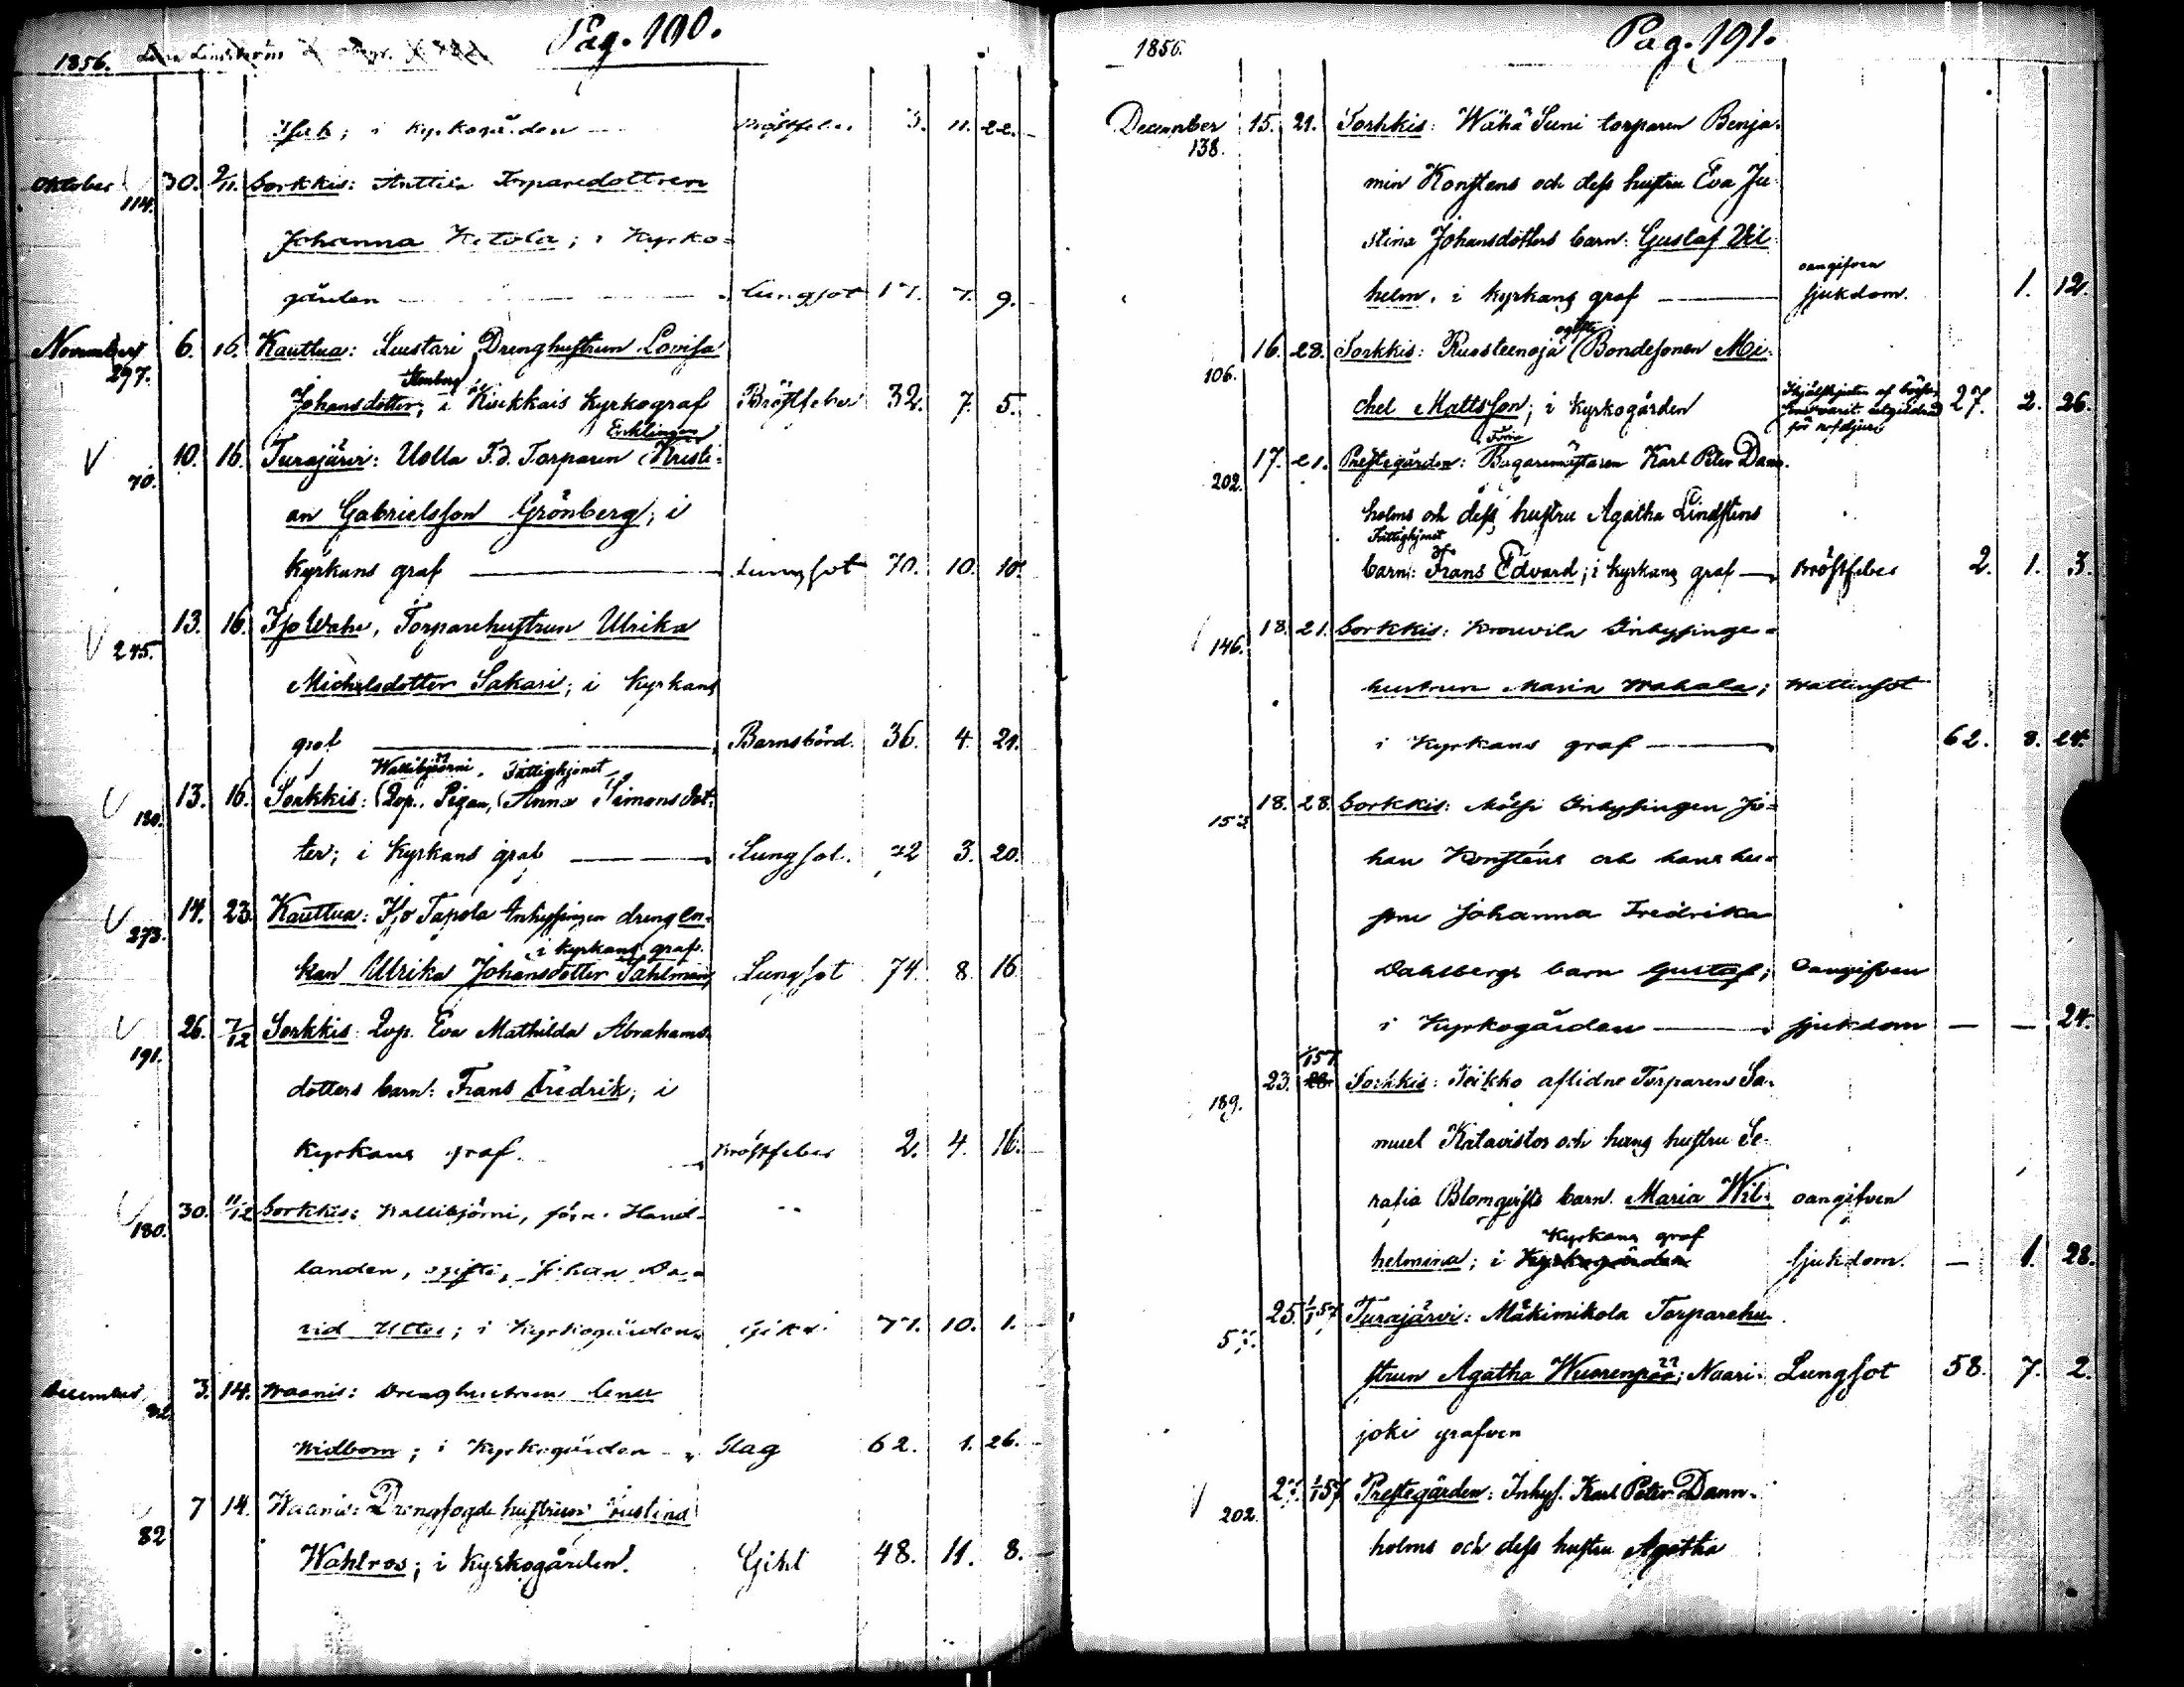 Pag. 190.
1856.
Isak; i Kyrkogården — Bröstfeber 3. 11. 22.
Oktober 114. 30. 2/11. Sorkkis: Anttila Torparedottren
Johanna Ketola; i Kyrko-
gården — Lungsot 17. 7. 9.
November 297. 6. 16. Kauttua: Luustari Drenghustrun Lovisa
Stenberg
Johansdotter; i Kiukkais Kyrkograf Bröstfeber 32. 7. 5.
Ersklingen
70. 10. 16. Turajärvi: Uolla F.d. Torparen Kristi-
an Gabrielsson Grönberg; i
Kyrkans graf — Lungsot 70. 10. 10.
245. 13. 16. Iso Wahe, Torparehustrun Ulrika
Michelsdotter Sakari; i Kyrkans
graf — Barnsbörd. 36. 4. 21.
Wallibjörni, Fattighjonet
180. 13. 16. Sorkkis: Lösp. Pigan, Anna Simonsdot-
ter; i Kyrkans graf — Lungsot. 72 3. 20.
273. 14. 23. Kauttua: Iso Tapola Inhysingen drengen-
i Kyrkans graf.
kan Ulrika Johansdotter Sahlman, Lungsot 74. 8. 16
191. 26. 7/12 Sorkkis: Lösp. Eva Mathilda Abrahams-
dotters barn: Frans Fredrik; i
Kyrkans graf. Bröstfeber 2. 4. 16.
180. 30. 11/12 Sorkkis: Wallibjörni, förre Hand-
landen, ogifte, Johan Da-
vid Utter; i Kyrkogården, Gikt 77. 10. 1.
December 82. 3. 14. Waanis: Drenghustrun Lena
Widbom; i Kyrkogården — Slag 62. 1. 26.
82 7 14. Waanis: Drengfogdehustrun Justina
Wahlros; i Kyrkogården. Gikt 48. 11. 8.
Pag. 191.
1856.
December 138. 15. 21. Sorkkis: Wähä Suni torparen Benja-
min Konstens och dess hustru Eva Ju-
stina Johansdotters barn: Gustaf Vil-
oangifven
helm, i Kyrkans graf — sjukdom. 1. 12.
ogifte
106. 16. 28. Sorkkis: Ruosteenoja Bondesonen Mi-
chel Mattsson; i Kyrkogården 27. 2. 26.
Förre
202. 17. 21. Prestegården: Bagaremästaren Karl Peter Dann-
holms och dess hustru Agatha Lindstens
Fattighjonet
barn: Frans Edvard; i Kyrkans graf — Bröstfeber 2. 1. 3.
146. 18. 21. Sorkkis: Krouvila Inhysinge-
hustrun Maria Wahala; Wattensot
i Kyrkans graf — 62. 8. 24.
153 18. 28. Sorkkis: Mölsi Inhysingen Jo-
han Konsténs och hans hu-
stru Johanna Fredrika
Dahlbergs barn Gustaf; Oangifven
i Kyrkogården — sjukdom — — 24.
1/157.
189. 23. 28. Sorkkis: Teikko aflidne Torparens Sa-
muel Katavistos och hans hustru Se-
rafia Blomqvists barn. Maria Wil- oangifven
Kyrkans graf
helmina; i Kyrkogården sjukdom. — 1. 28.
25. 1/157 Turajärvi: Mäkimikola Torparehu-
strun Agatha Wuorenpää; Naari- Lungsot 58. 7. 2.
joki grafven
202. 27. 1/157 Prestegården: Inhys. Karl Peter Dann-
holms och dess hustru Agatha